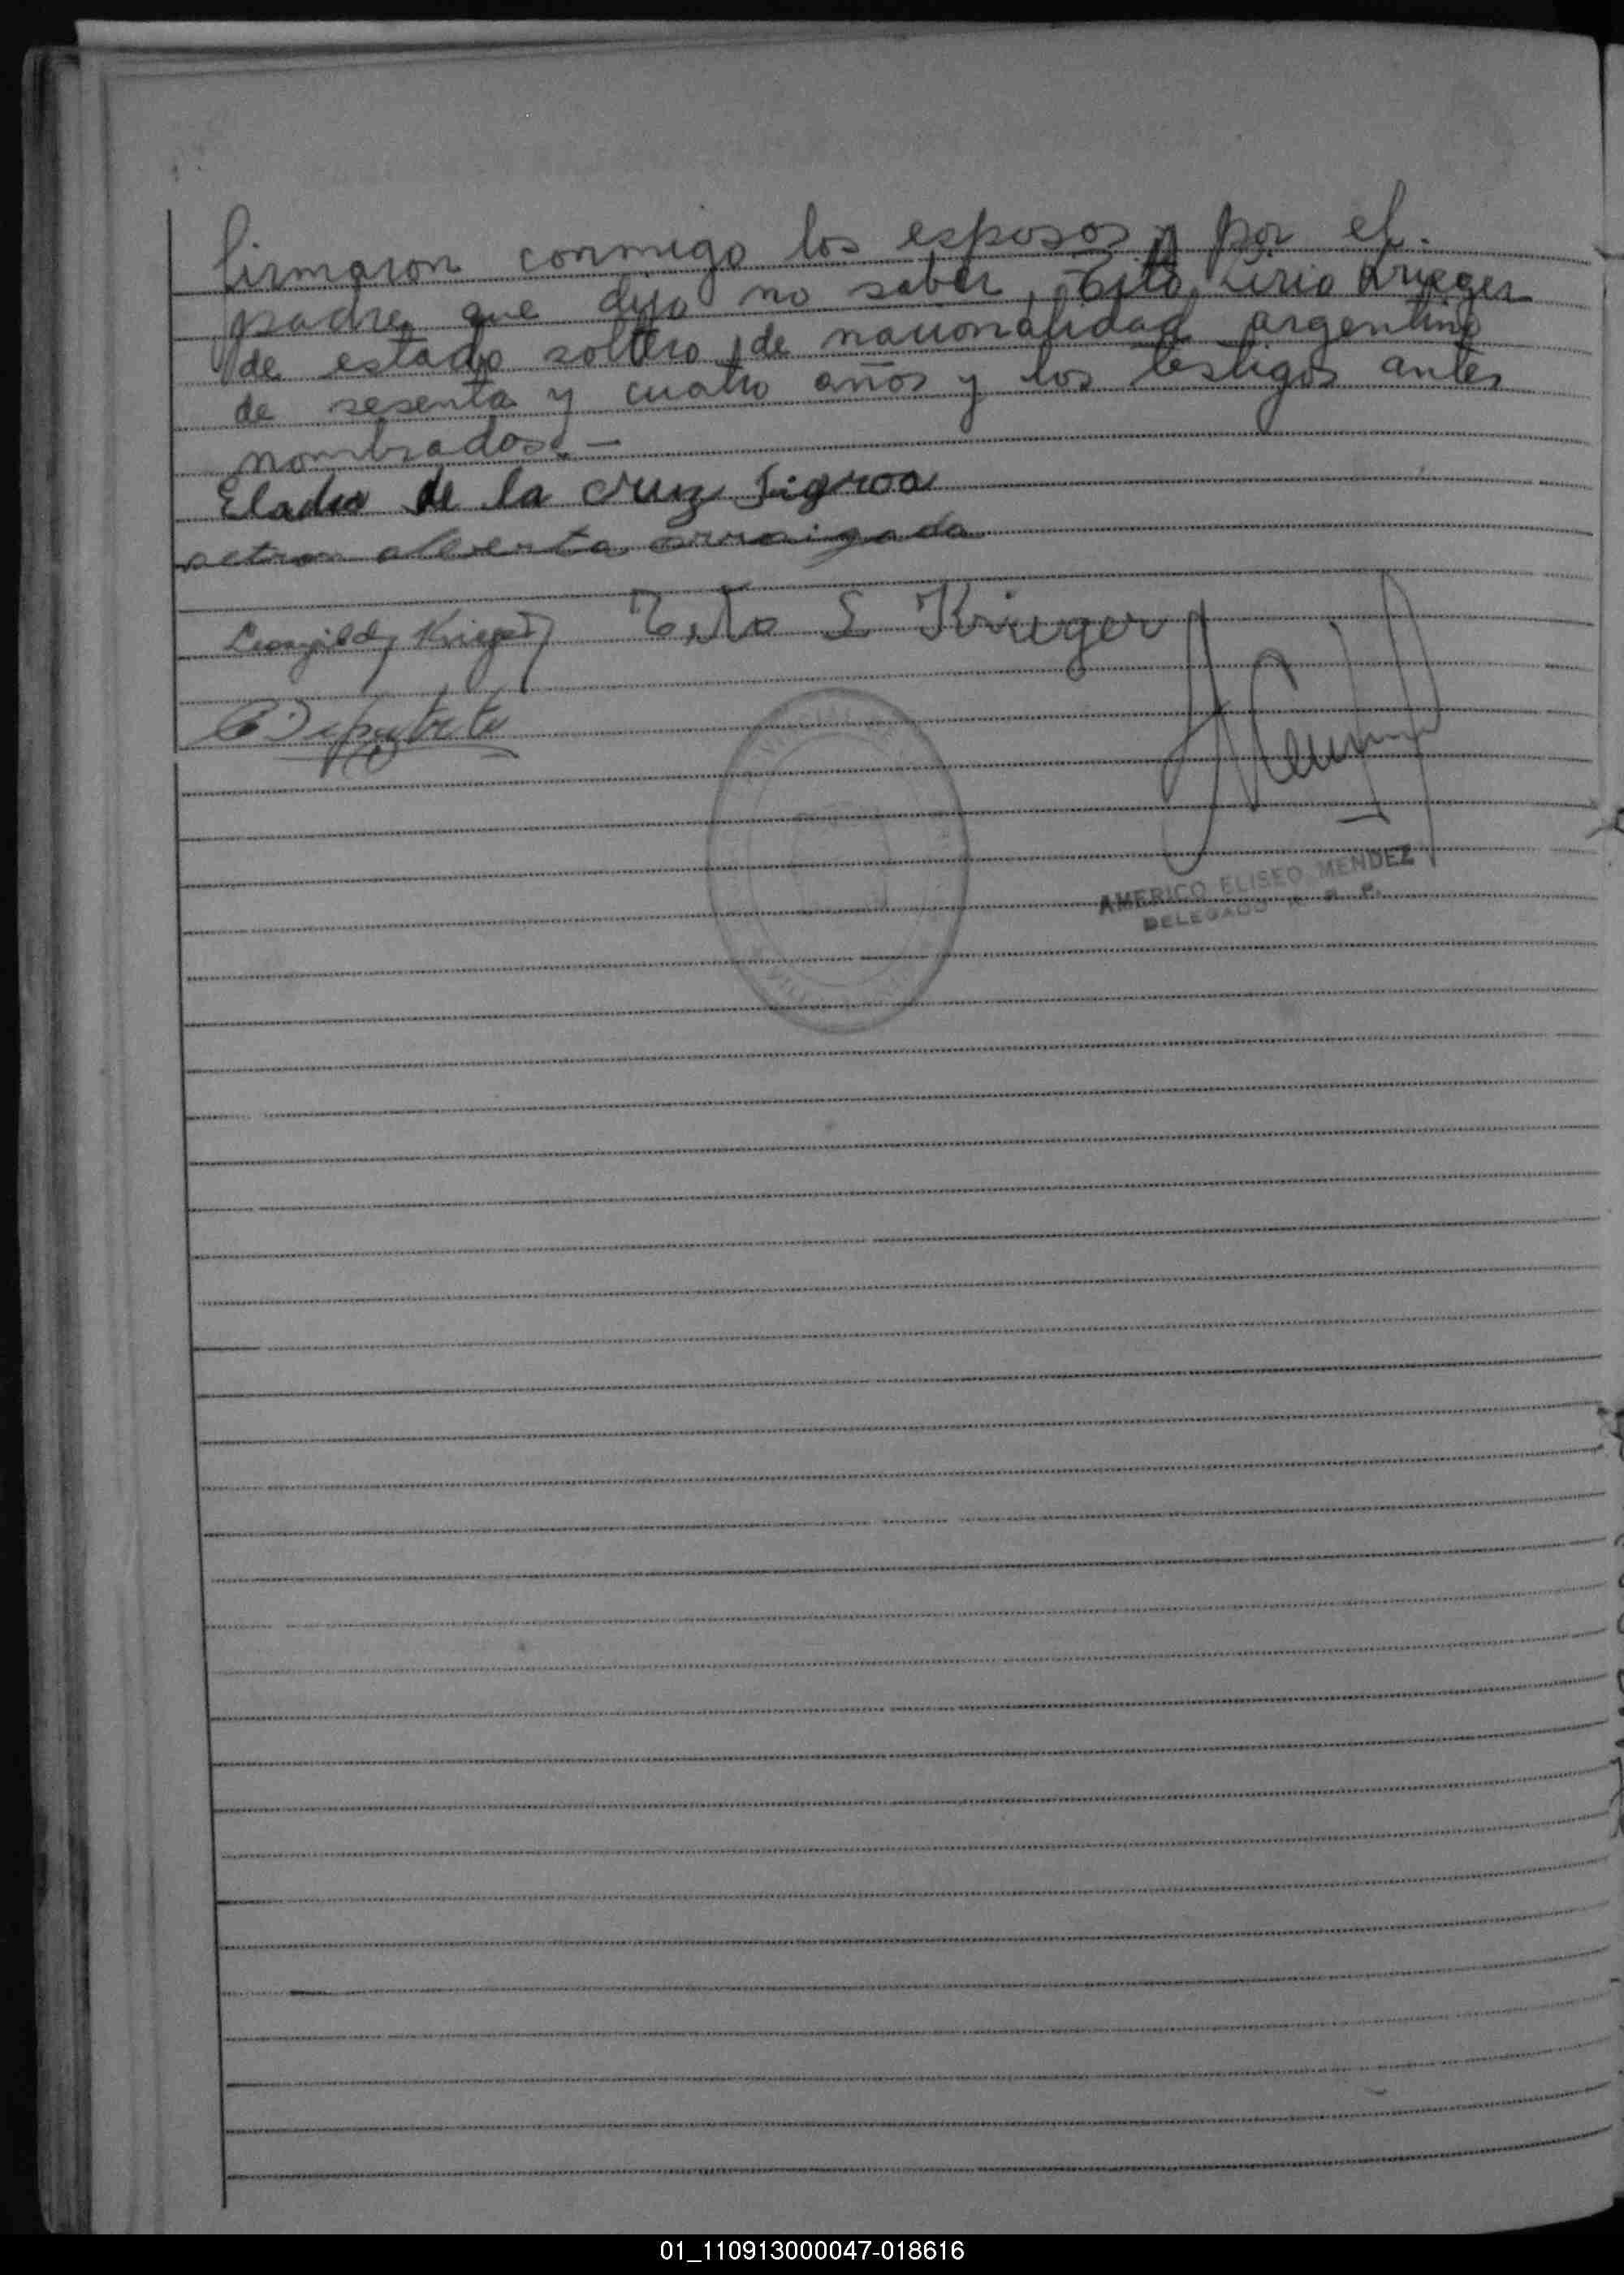 firmaron conmigo los esposos y por el
padre que dijo no saber, Tito Lirio Krieger
de estado soltero, de nacionalidad argentino
de sesenta y cuatro años y los testigos antes
nombrados.—
Eladio de la cruz Figroa
petrona alberta arraigada
Leongildo Krieger Tito L Krieger
AMERICO ELISEO MENDEZ
DELEGADO R. P.
01_110913000047-018616